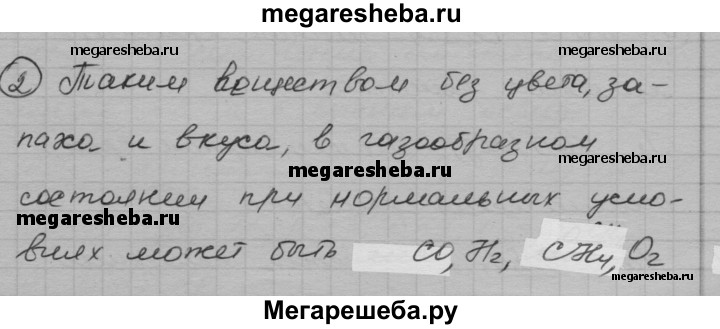 megaresheba.ru
megaresheba.ru megaresheba.ru
② Таким веществом без цвета, за-
паха и вкуса, в газообразном
megaresheba.ru megaresheba.ru
состоянии при нормальных усло-
megaresheba.ru
виях может быть CO, H₂, CH₄, O₂
megaresheba.ru
Мегарешеба.ру